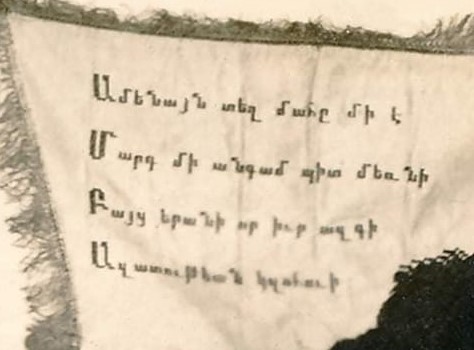 Ամենայն տեղ մահը մի է
Մարդ մի անգամ պիտ մեռնի
Բայց երանի որ իւր ազգի
Ազատութեան կզոհուի